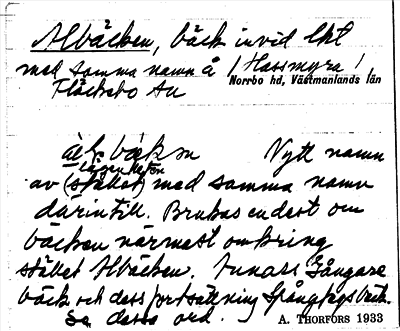 Albäcken, bäck invid lht
med samma namn å / Hassmyra /,
Norrbo hd, Västmanlands län
Fläckebo sn
bäkən Nytt namn
lägenheten
av (stället) med samma namn
därintill. Brukas endast om
bäcken närmast omkring
stället Albäcken. Annars Gångare
bäck och dess fortsättning Spångtegsbäck.
Se dessa ord. A. THORFORS 1933